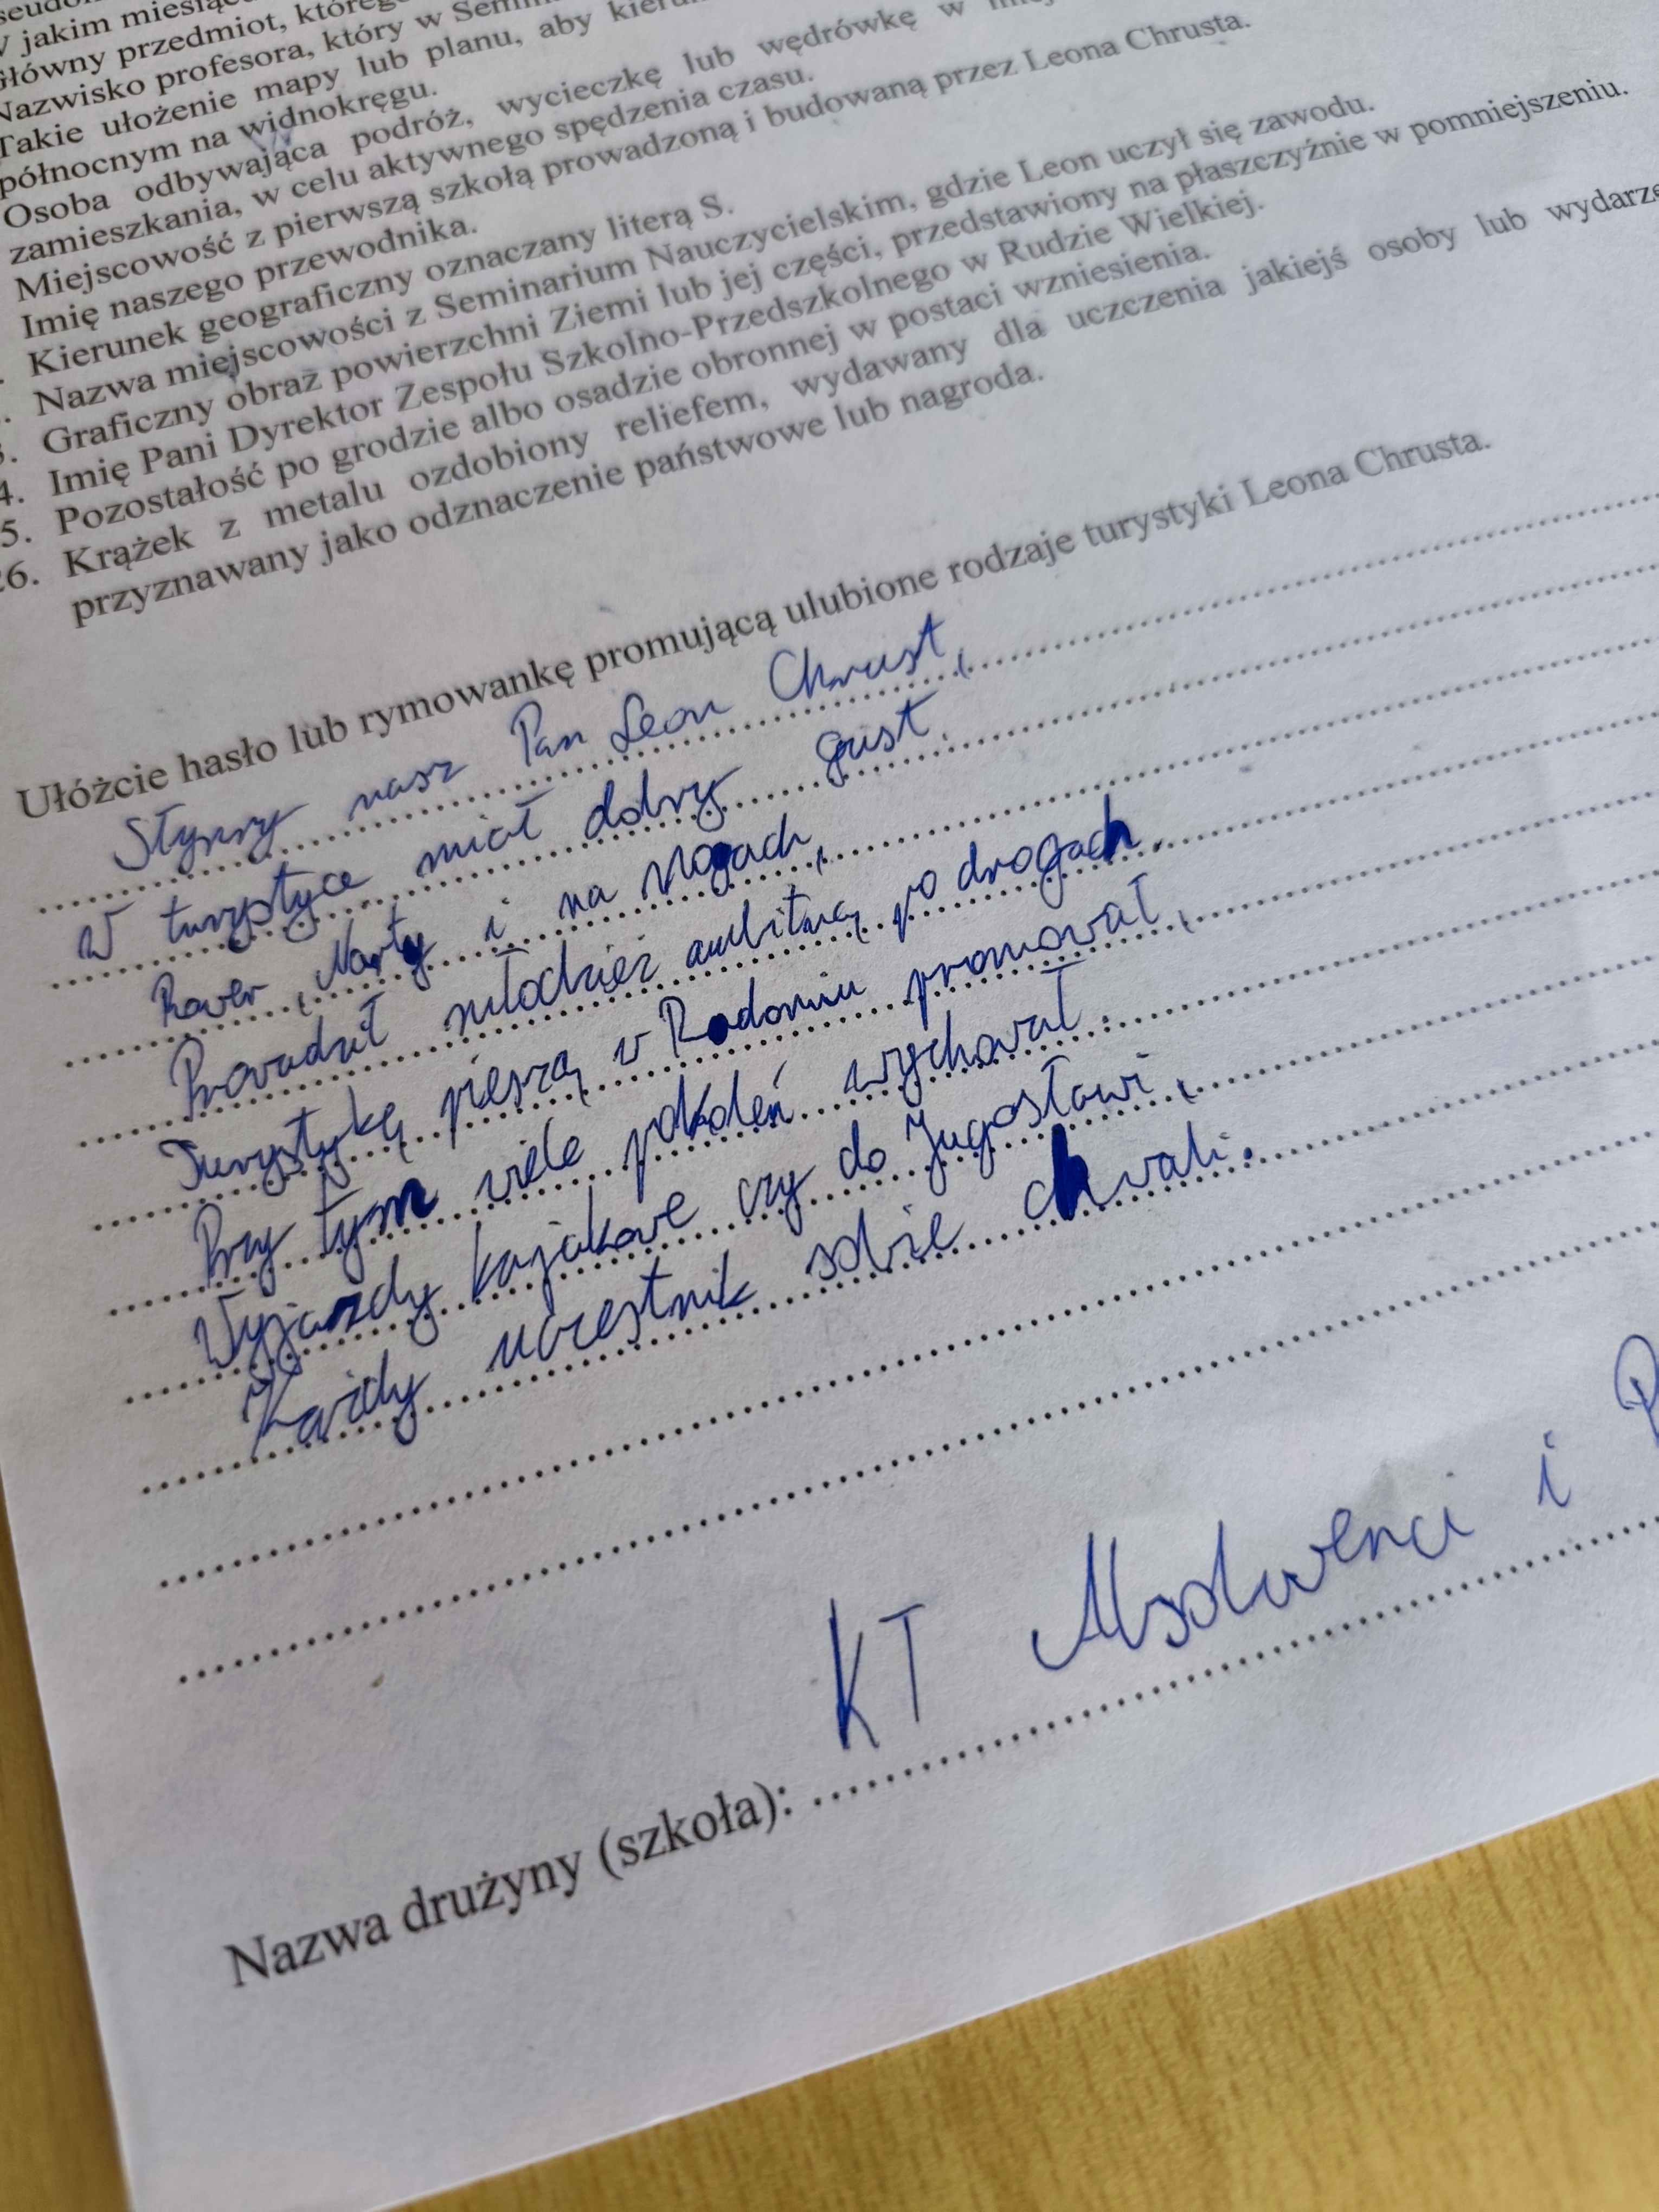 V jakim miesiącu
Główny przedmiot, którego
Nazwisko profesora, który w
Takie ułożenie mapy lub planu, aby
północnym na widnokręgu.
Osoba odbywająca podróż, wycieczkę lub wędrówkę w
zamieszkania, w celu aktywnego spędzenia czasu.
Miejscowość z pierwszą szkołą prowadzoną i budowaną przez Leona Chrusta.
Imię naszego przewodnika.
Kierunek geograficzny oznaczany literą S.
Nazwa miejscowości z Seminarium Nauczycielskim, gdzie Leon uczył się zawodu.
3. Graficzny obraz powierzchni Ziemi lub jej części, przedstawiony na płaszczyźnie w pomniejszeniu.
4. Imię Pani Dyrektor Zespołu Szkolno-Przedszkolnego w Rudzie Wielkiej.
5. Pozostałość po grodzie albo osadzie obronnej w postaci wzniesienia.
26. Krążek z metalu ozdobiony reliefem, wydawany dla uczczenia jakiejś osoby lub wydarze
przyznawany jako odznaczenie państwowe lub nagroda.
Ułóżcie hasło lub rymowankę promującą ulubione rodzaje turystyki Leona Chrusta.
Słynny nasz Pan Leon Chrust,
W turystyce miał dobry gust.
Rower, Narty i na Nogach,
Prowadził młodzież ambitną po drogach.
Turystykę pieszą w Radomiu promował,
Przy tym wiele pokoleń wychował.
Wyjazdy kajakowe czy do Jugosławi,
Każdy uczestnik sobie chwali.
KT Absolwenci i P
Nazwa drużyny (szkoła):